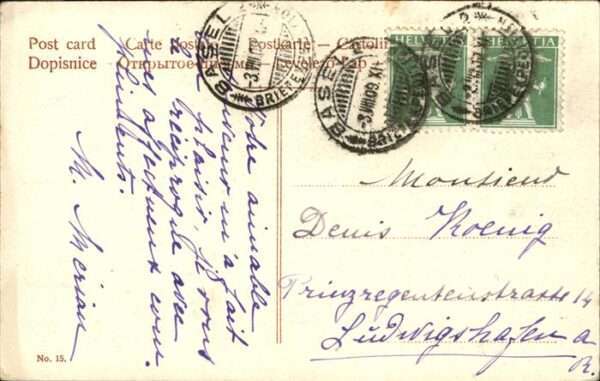 Post card — Carte Postale — Postkarte — Cartolina
Dopisnice — Открытое
BASEL
3.VIII.09 XI
BRIEFE
BASEL
3.VIII.09 XI
HELVETIA
HELVETIA
Votre aimable
souvenir m'a fait
plaisir, je vous
réciproque avec
mes affectueux com-
pliments.
M. Merian
Monsieur
Denis Koenig
Prinzregentenstrasse 14
Ludwigshafen a
R.
No. 15.